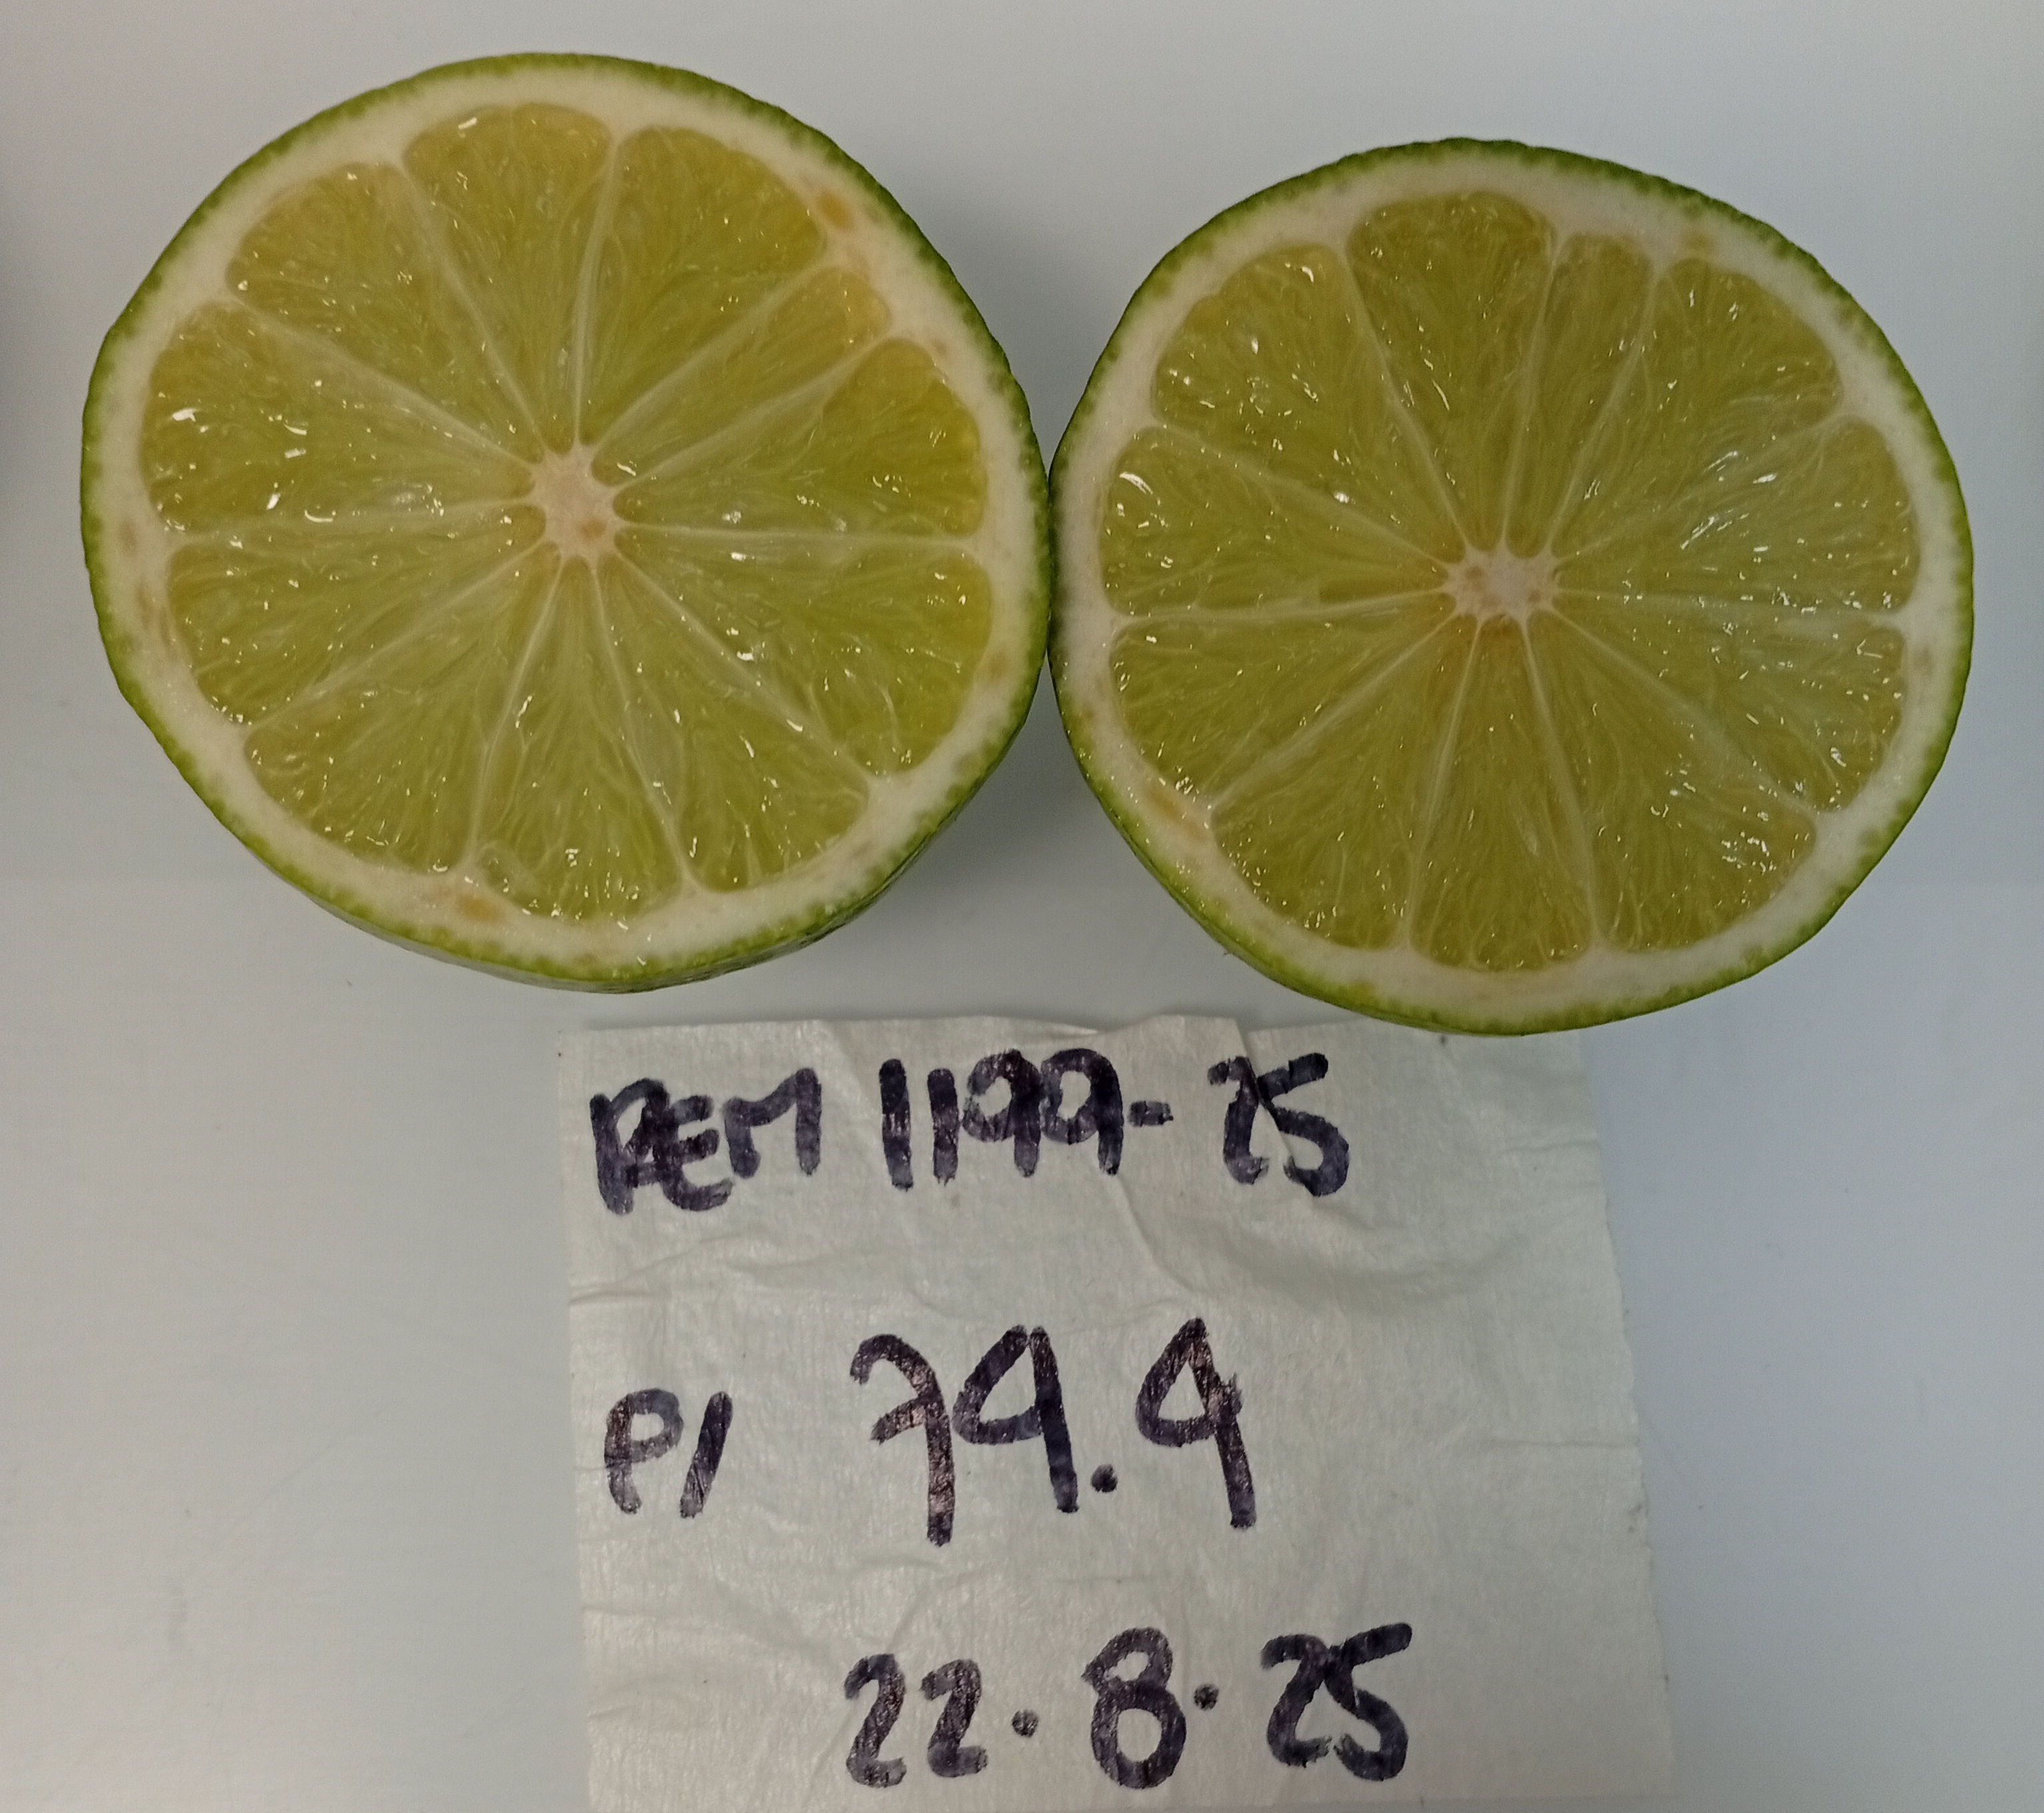 REM 1199-25
P1 79.9
22.8.25